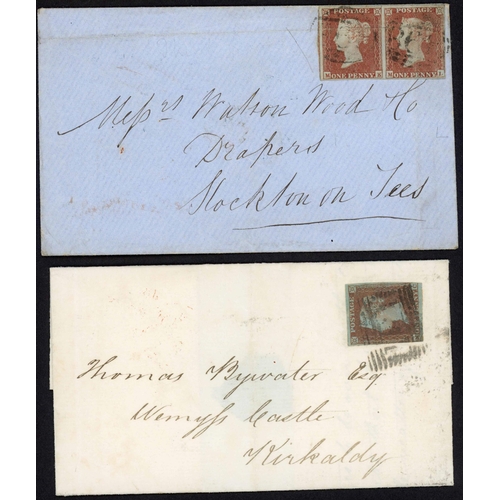 POSTAGE POSTAGE
ONE PENNY ONE PENNY
Messrs Watson Wood & Co
Drapers
Stockton on Tees
POSTAGE
Thomas Bywater Esq
Wemyss Castle
Kirkaldy